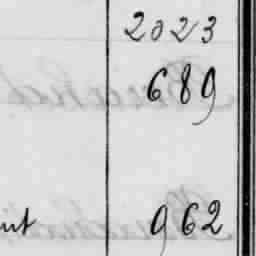 2023
689
962